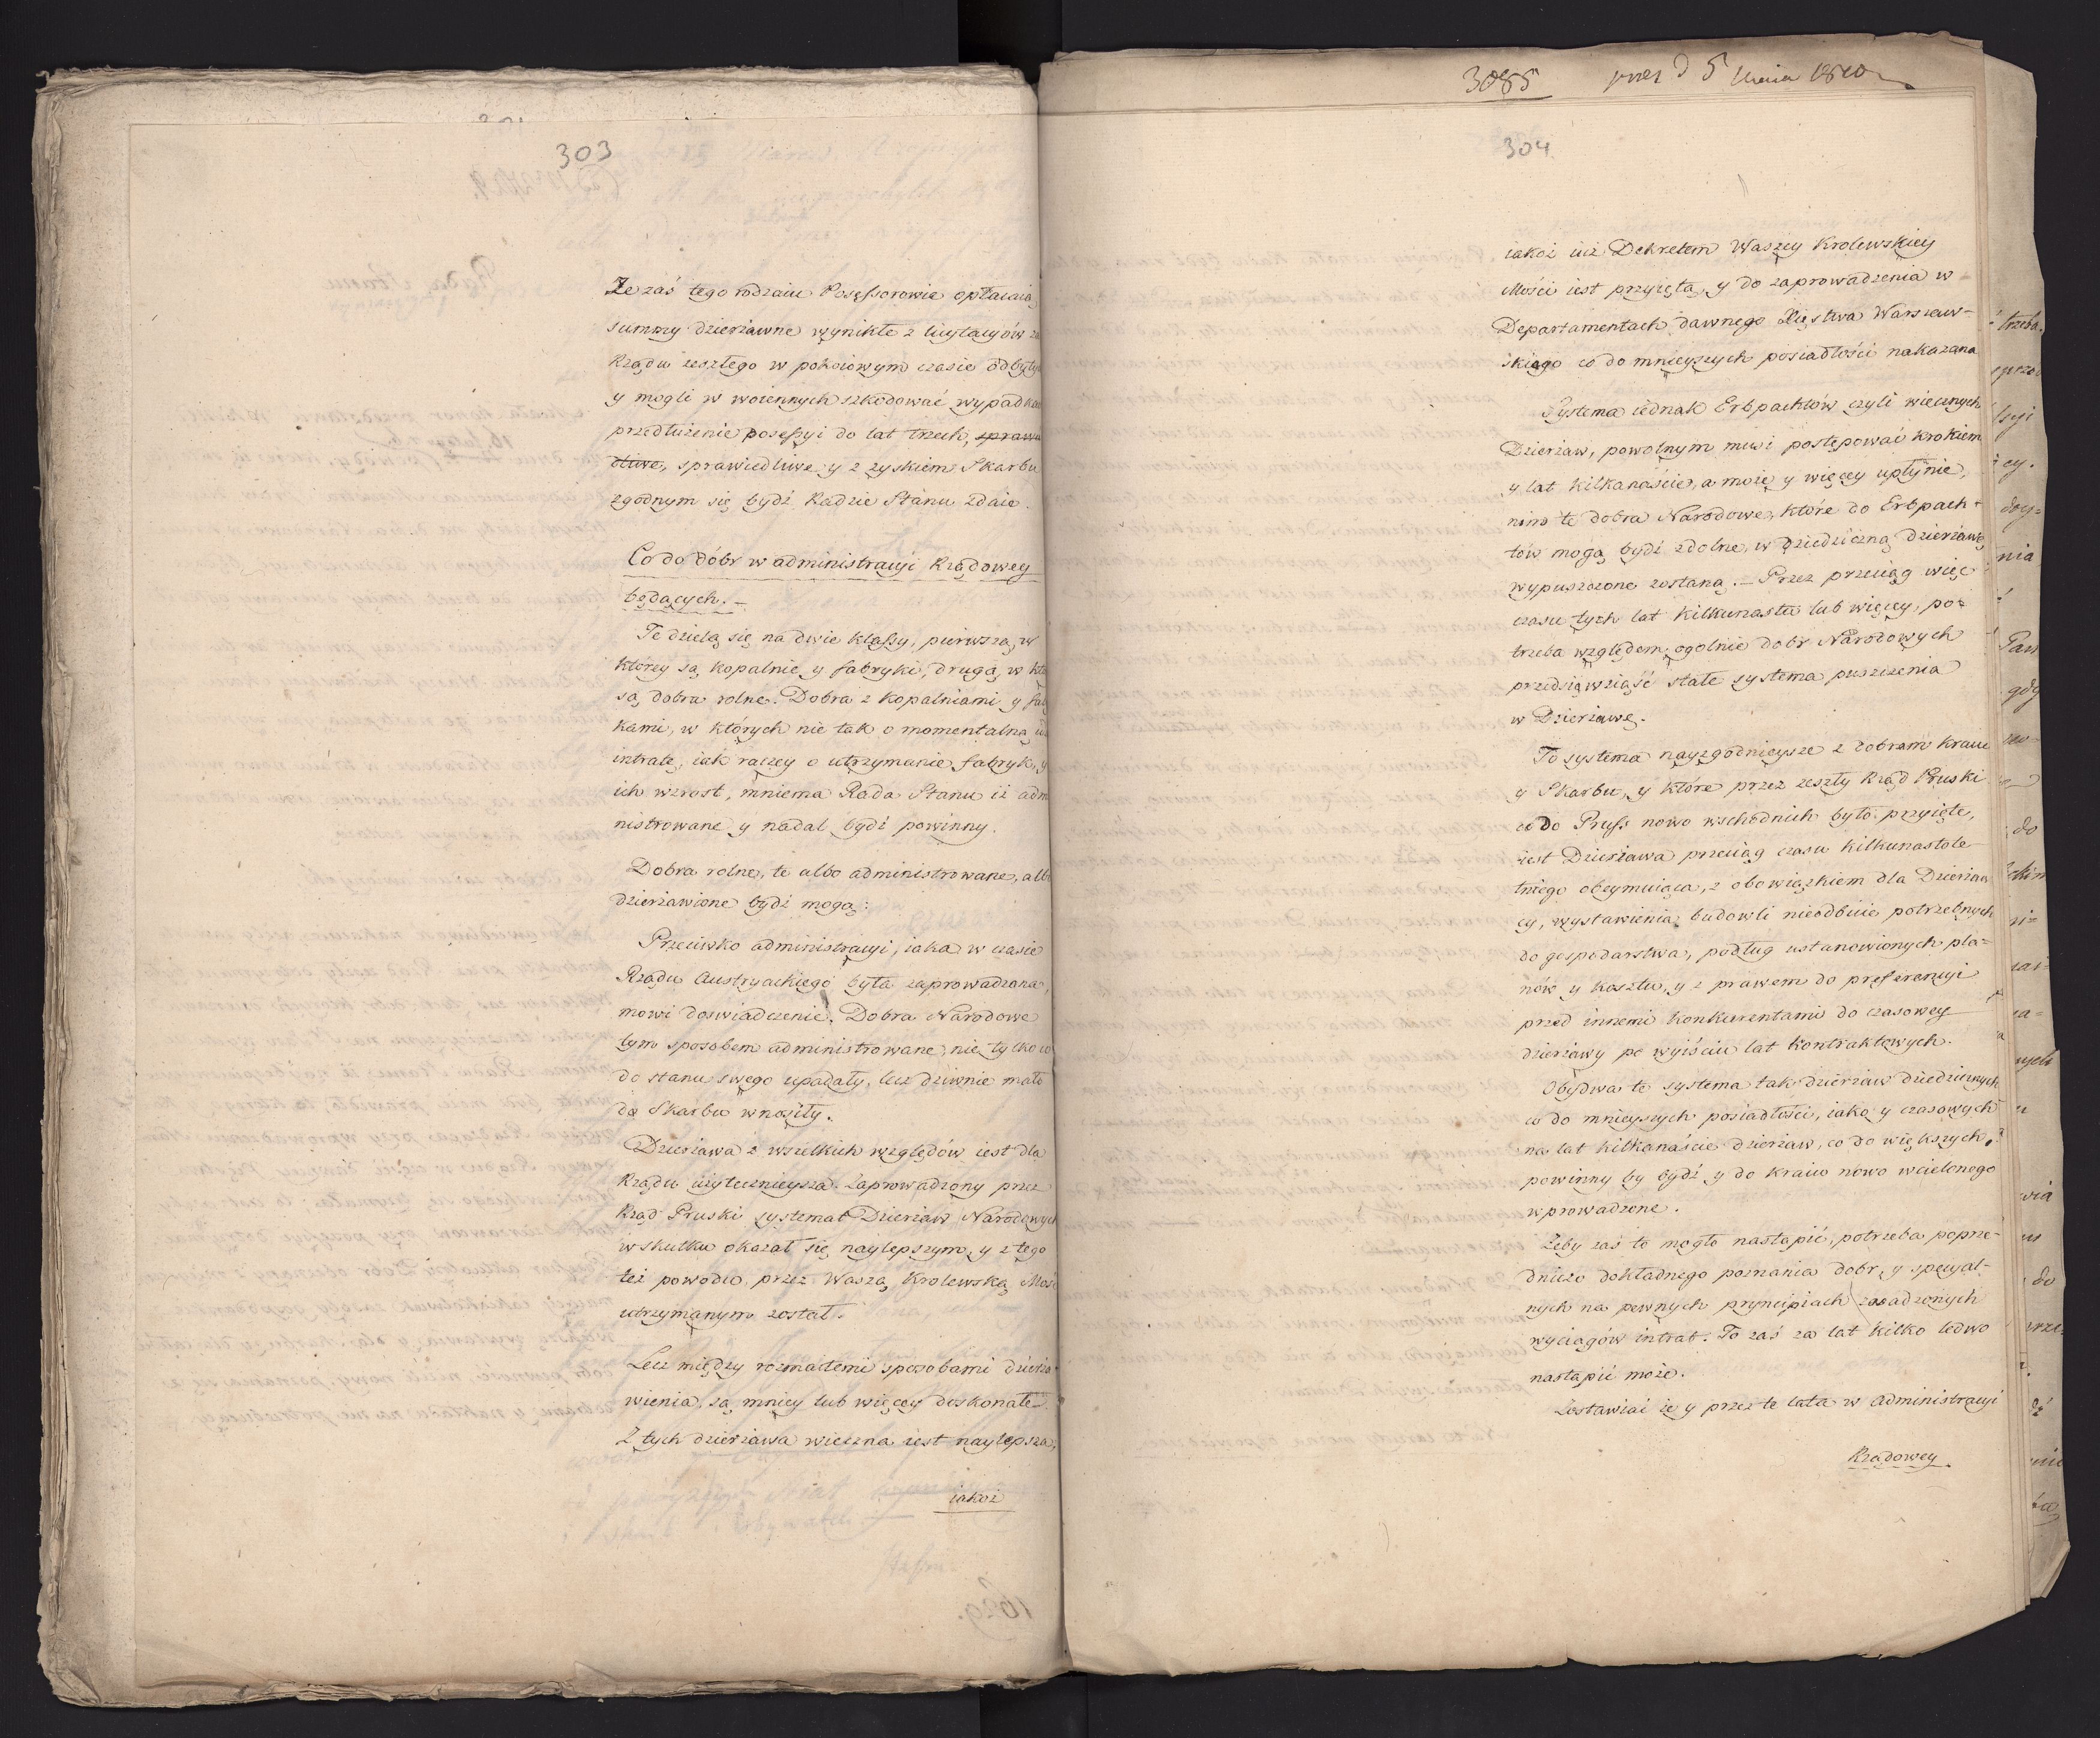 303
Że zaś tego rodzaiu Possessorowie opłacaią
summy dzierżawne wynikłe z licytacyów za
Rządu zeszłego w pokoiowym czasie odbytych
y mogli w woiennych szkodować wypadkach
przedłużenie posessyi do lat trzech, sprawie
dliwe, sprawiedliwe y z zyskiem Skarbu
zgodnym się bydź Radzie Stanu zdaie.
Co do dóbr w administracyi Rządowey
będących. –
Te dzielą się na dwie klassy, pierwsza, w
którey są kopalnie y fabryki, druga, w któ
są dobra rolne. Dobra z kopalniami y fab
kami, w których nie tak o momentalną
intratę, iak raczey o utrzymanie fabryk, y
ich wzrost, mniema Rada Stanu iż admi
nistrowane y nadal bydź powinny.
Dobra rolne, te albo administrowane, albo
dzierżawione bydź mogą:
Przeciwko administracyi, iaka w czasie
Rządu Austryackiego była zaprowadzona,
mowi doswiadczenie. Dobra Narodowe
tym sposobem administrowane, nie tylko co
do stanu swego upadały, lecz dziwnie mało
do Skarbu wnosiły.
Dzierżawa z wszelkich względów iest dla
Rządu użytecznieysza. Zaprowadzony przez
Rząd Pruski systemat Dzierżaw Narodowych
w skutku okazał się naylepszym, y z tego
też powodu przez Waszą Krolewską Mość
utrzymanym został.
Lecz między rozmaitemi sposobami dzierża-
wienia, są mniey lub więcey doskonałe.
Z tych dzierżawa wieczna iest naylepsza,
iakoż
3085 5 Maia 1810
304
iakoż iuż Dekretem Waszey Krolewskiey
Mości iest przyięta, y do zaprowadzenia w
Departamentach dawnego Xięstwa Warszaw-
skiego co do mnieyszych posiadłości nakazana
Systema iednak Erbpachtów czyli wiecznych
Dzierżaw, powolnym musi postępować krokiem
y lat kilkanaście, a może y więcey upłynie,
nim te dobra Narodowe, które do Erbpach-
tów mogą bydź zdolne, w dziedziczną dzierżawę
wypuszczone zostaną. – Przez przeciąg więc
czasu tych lat kilkunastu lub więcey, po-
trzeba względem ogolnie dobr Narodowych
przedsięwziąść stałe systema puszczenia
w Dzierżawę.
To systema nayzgodnieysze z dobrem kraiu
y Skarbu, y które przez zeszły Rząd Pruski
co do Pruss nowo wschodnich było przyięte,
iest Dzierżawa przeciąg czasu kilkunastole-
tniego obeymuiąca, z obowiązkiem dla Dzierżaw
cy, wystawienia budowli nieodbicie potrzebnych
do gospodarstwa, podług ustanowionych pla-
nów y kosztu, y z prawem do preferencyi
przed innemi konkurentami do czasowey
dzierżawy po wyiściu lat kontraktowych.
Obydwa te systema tak dzierżaw dziedzicznych
co do mnieyszych posiadłości, iako y czasowych
na lat kilkanaście dzierżaw, co do większych,
powinny by bydź y do kraiu nowo wcielonego
wprowadzone.
Żeby zaś to mogło nastąpić, potrzeba poprze-
dniczo dokładnego poznania dobr, y specyal-
nych na pewnych pryncipiach zasadzonych
wyciągów intrat. To zaś za lat kilko ledwo
nastąpić może.
Zostawiać ie y przez te lata w administracyi
Rządowey